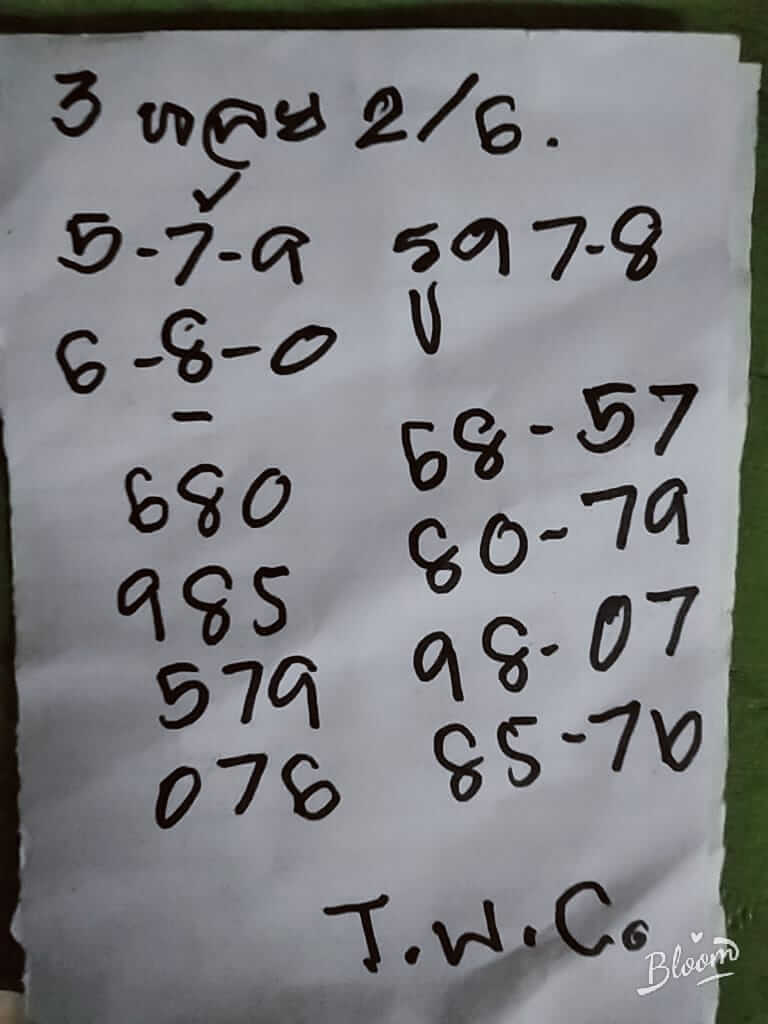 3 หลุย 2/6.
5-7-9 597-8
6-8-0 U
680 68-57
985 80-79
579 98-07
076 85-76
T.W.C.
Bloom